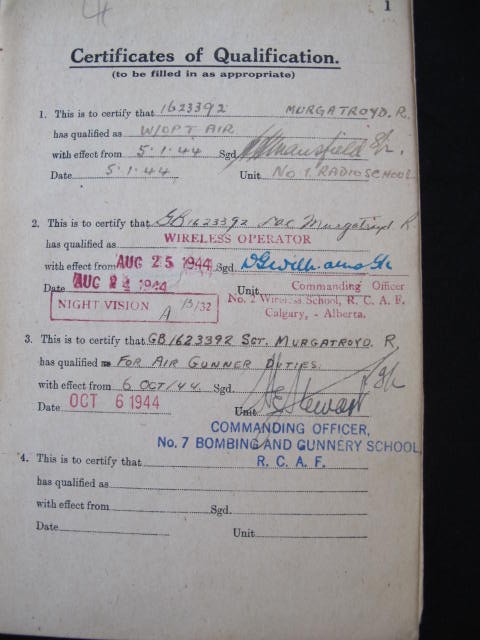 1
Certificates of Qualification.
(to be filled in as appropriate)
1. This is to certify that 1623392 MURGATROYD. R.
has qualified as W/OPT AIR
with effect from 5.1.44 Sgd. Mansfield
Date 5.1.44 Unit No 1. RADIO SCHOOL
2. This is to certify that GB1623392 Lac Murgatroyd R
has qualified as WIRELESS OPERATOR
with effect from AUG 25 1944 Sgd. DG Williams
Date AUG 24 1944 Unit Commanding Officer
No. 2 Wireless School, R. C. A. F.
Calgary, - Alberta.
NIGHT VISION A 13/32
3. This is to certify that GB1623392 SGT. MURGATROYD. R,
has qualified as FOR AIR GUNNER DUTIES.
with effect from 6 OCT/44. Sgd. Stewart
Date OCT 6 1944 Unit
COMMANDING OFFICER,
No. 7 BOMBING AND GUNNERY SCHOOL
R. C. A. F.
4. This is to certify that
has qualified as
with effect from Sgd.
Date Unit